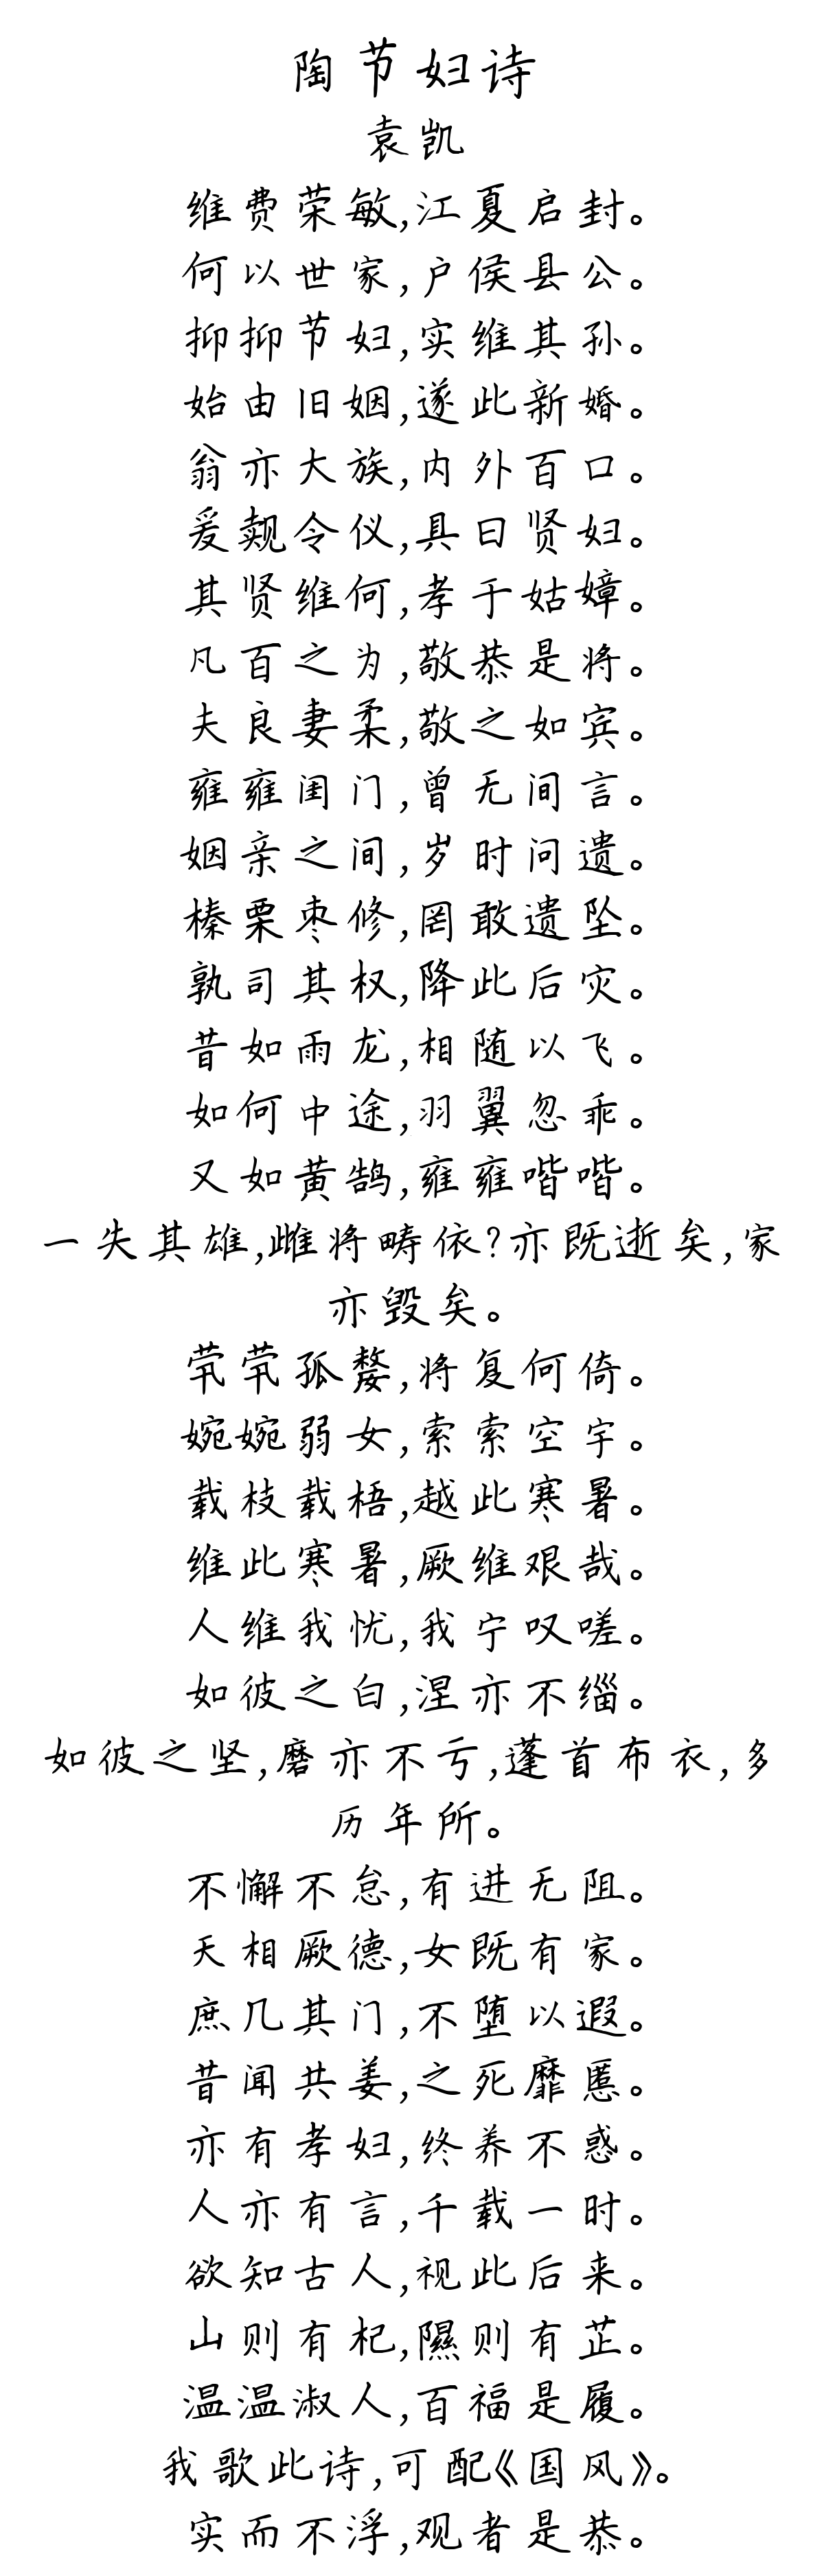 陶节妇诗
袁凯
维费荣敏,江夏启封。
何以世家,户侯县公。
抑抑节妇,实维其孙。
始由旧姻,遂此新婚。
翁亦大族,内外百口。
爰觌令仪,具曰贤妇。
其贤维何,孝于姑嫜。
凡百之为,敬恭是将。
夫良妻柔,敬之如宾。
雍雍闺门,曾无间言。
姻亲之间,岁时问遗。
榛栗枣修,罔敢遗坠。
孰司其权,降此后灾。
昔如雨龙,相随以飞。
如何中途,羽翼忽乖。
又如黄鹄,雍雍喈喈。
一失其雄,雌将畴依?亦既逝矣,家
亦毁矣。
茕茕孤嫠,将复何倚。
婉婉弱女,索索空宇。
载枝载梧,越此寒暑。
维此寒暑,厥维艰哉。
人维我忧,我宁叹嗟。
如彼之白,涅亦不缁。
如彼之坚,磨亦不亏,蓬首布衣,多
历年所。
不懈不怠,有进无阻。
天相厥德,女既有家。
庶几其门,不堕以遐。
昔闻共姜,之死靡慝。
亦有孝妇,终养不惑。
人亦有言,千载一时。
欲知古人,视此后来。
山则有杞,隰则有芷。
温温淑人,百福是履。
我歌此诗,可配《国风》。
实而不浮,观者是恭。